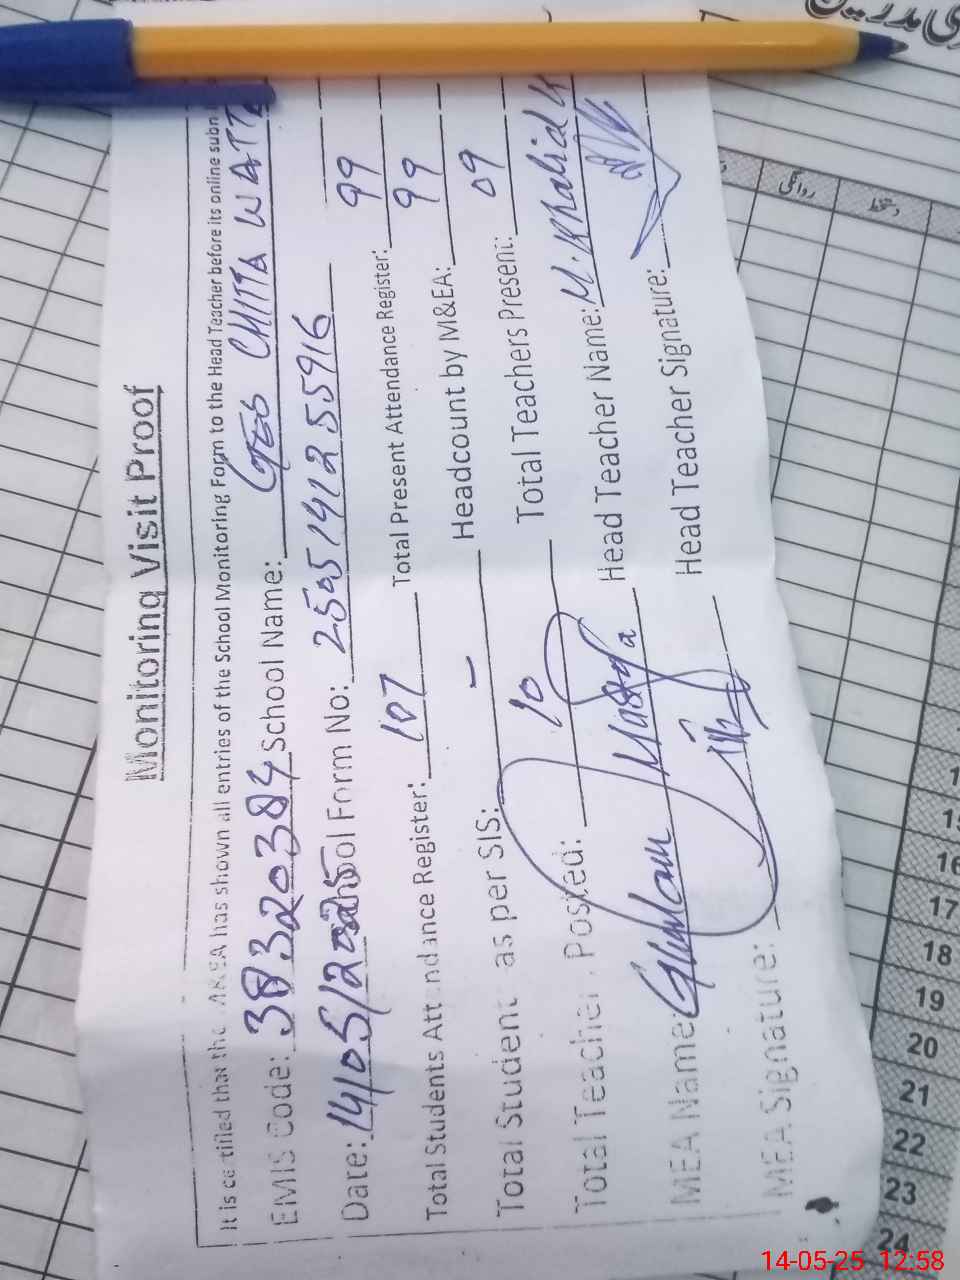 Monitoring Visit Proof
It is certified that the MEA has shown all entries of the School Monitoring Form to the Head Teacher before its online subm
EMIS Code: 38320384 School Name: GES CHITTA WATTA
Date: 14/05/2025 School Form No: 250514125 5916
Total Students Attendance Register: 107 Total Present Attendance Register: 99
Total Student as per SIS: - Headcount by M&EA: 99
Total Teacher Posted: 10 Total Teachers Present: 09
MEA Name Ghulam Head Teacher Name: M. Khalid
MEA Signature: Head Teacher Signature:
روانگی
دستخط
16
17
18
19
20
21
22
23
24
14-05-25 12:58